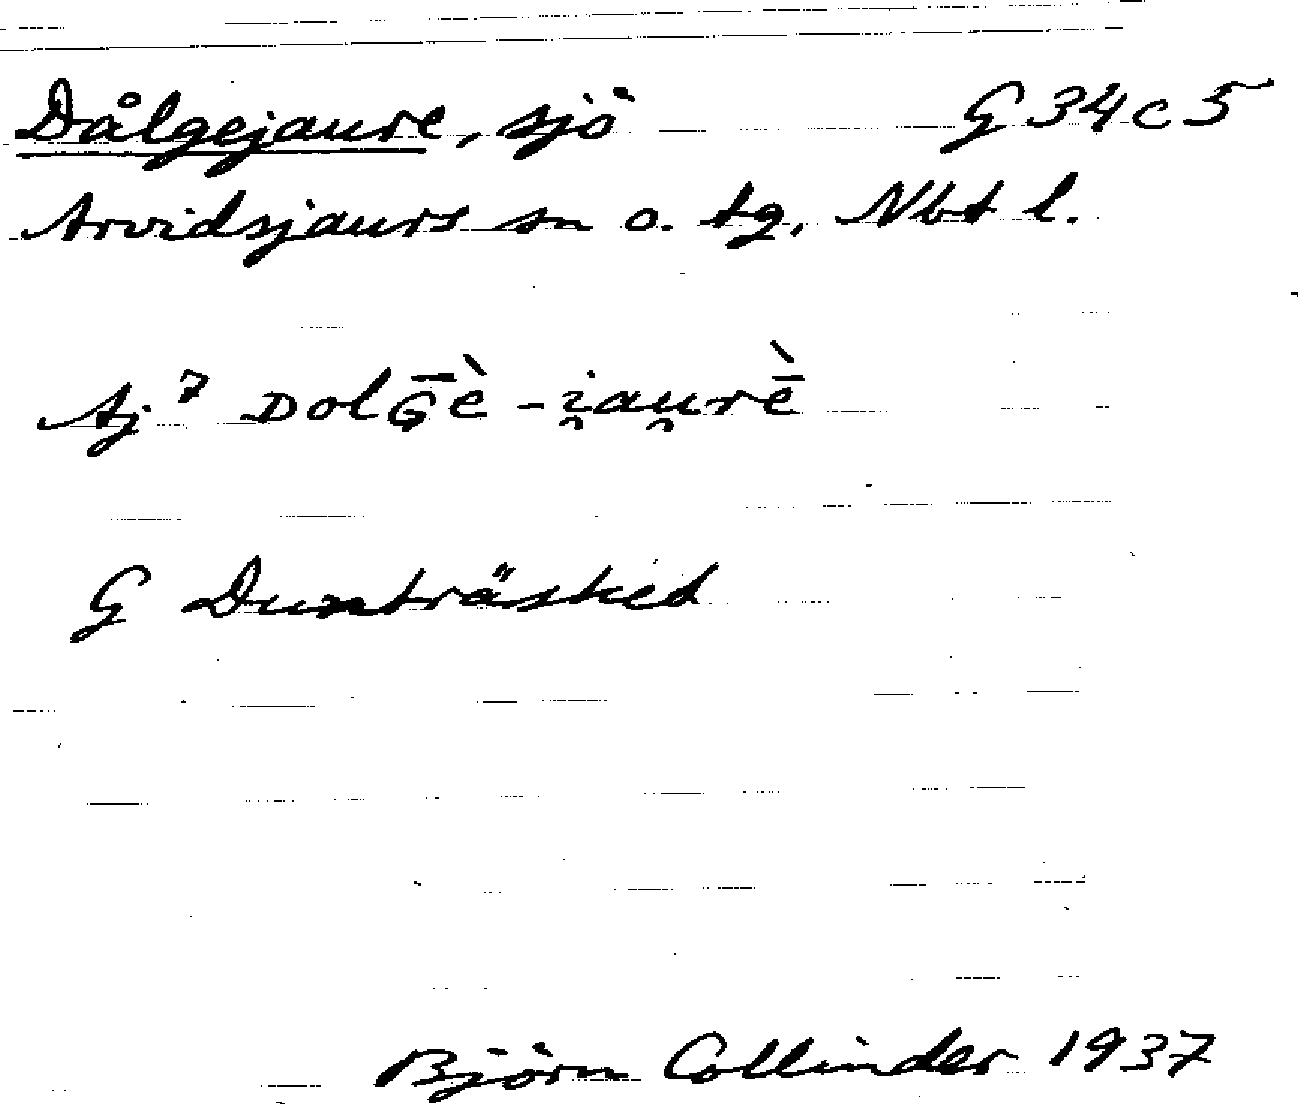 Dålgejaure, sjö G 34 c 5
Arvidsjaurs sn o. tg, Nbt l.
Aj⁷ ᴅolɢ̄è -i̯au̯rḕ
G Dunträsket
Björn Collinder 1937